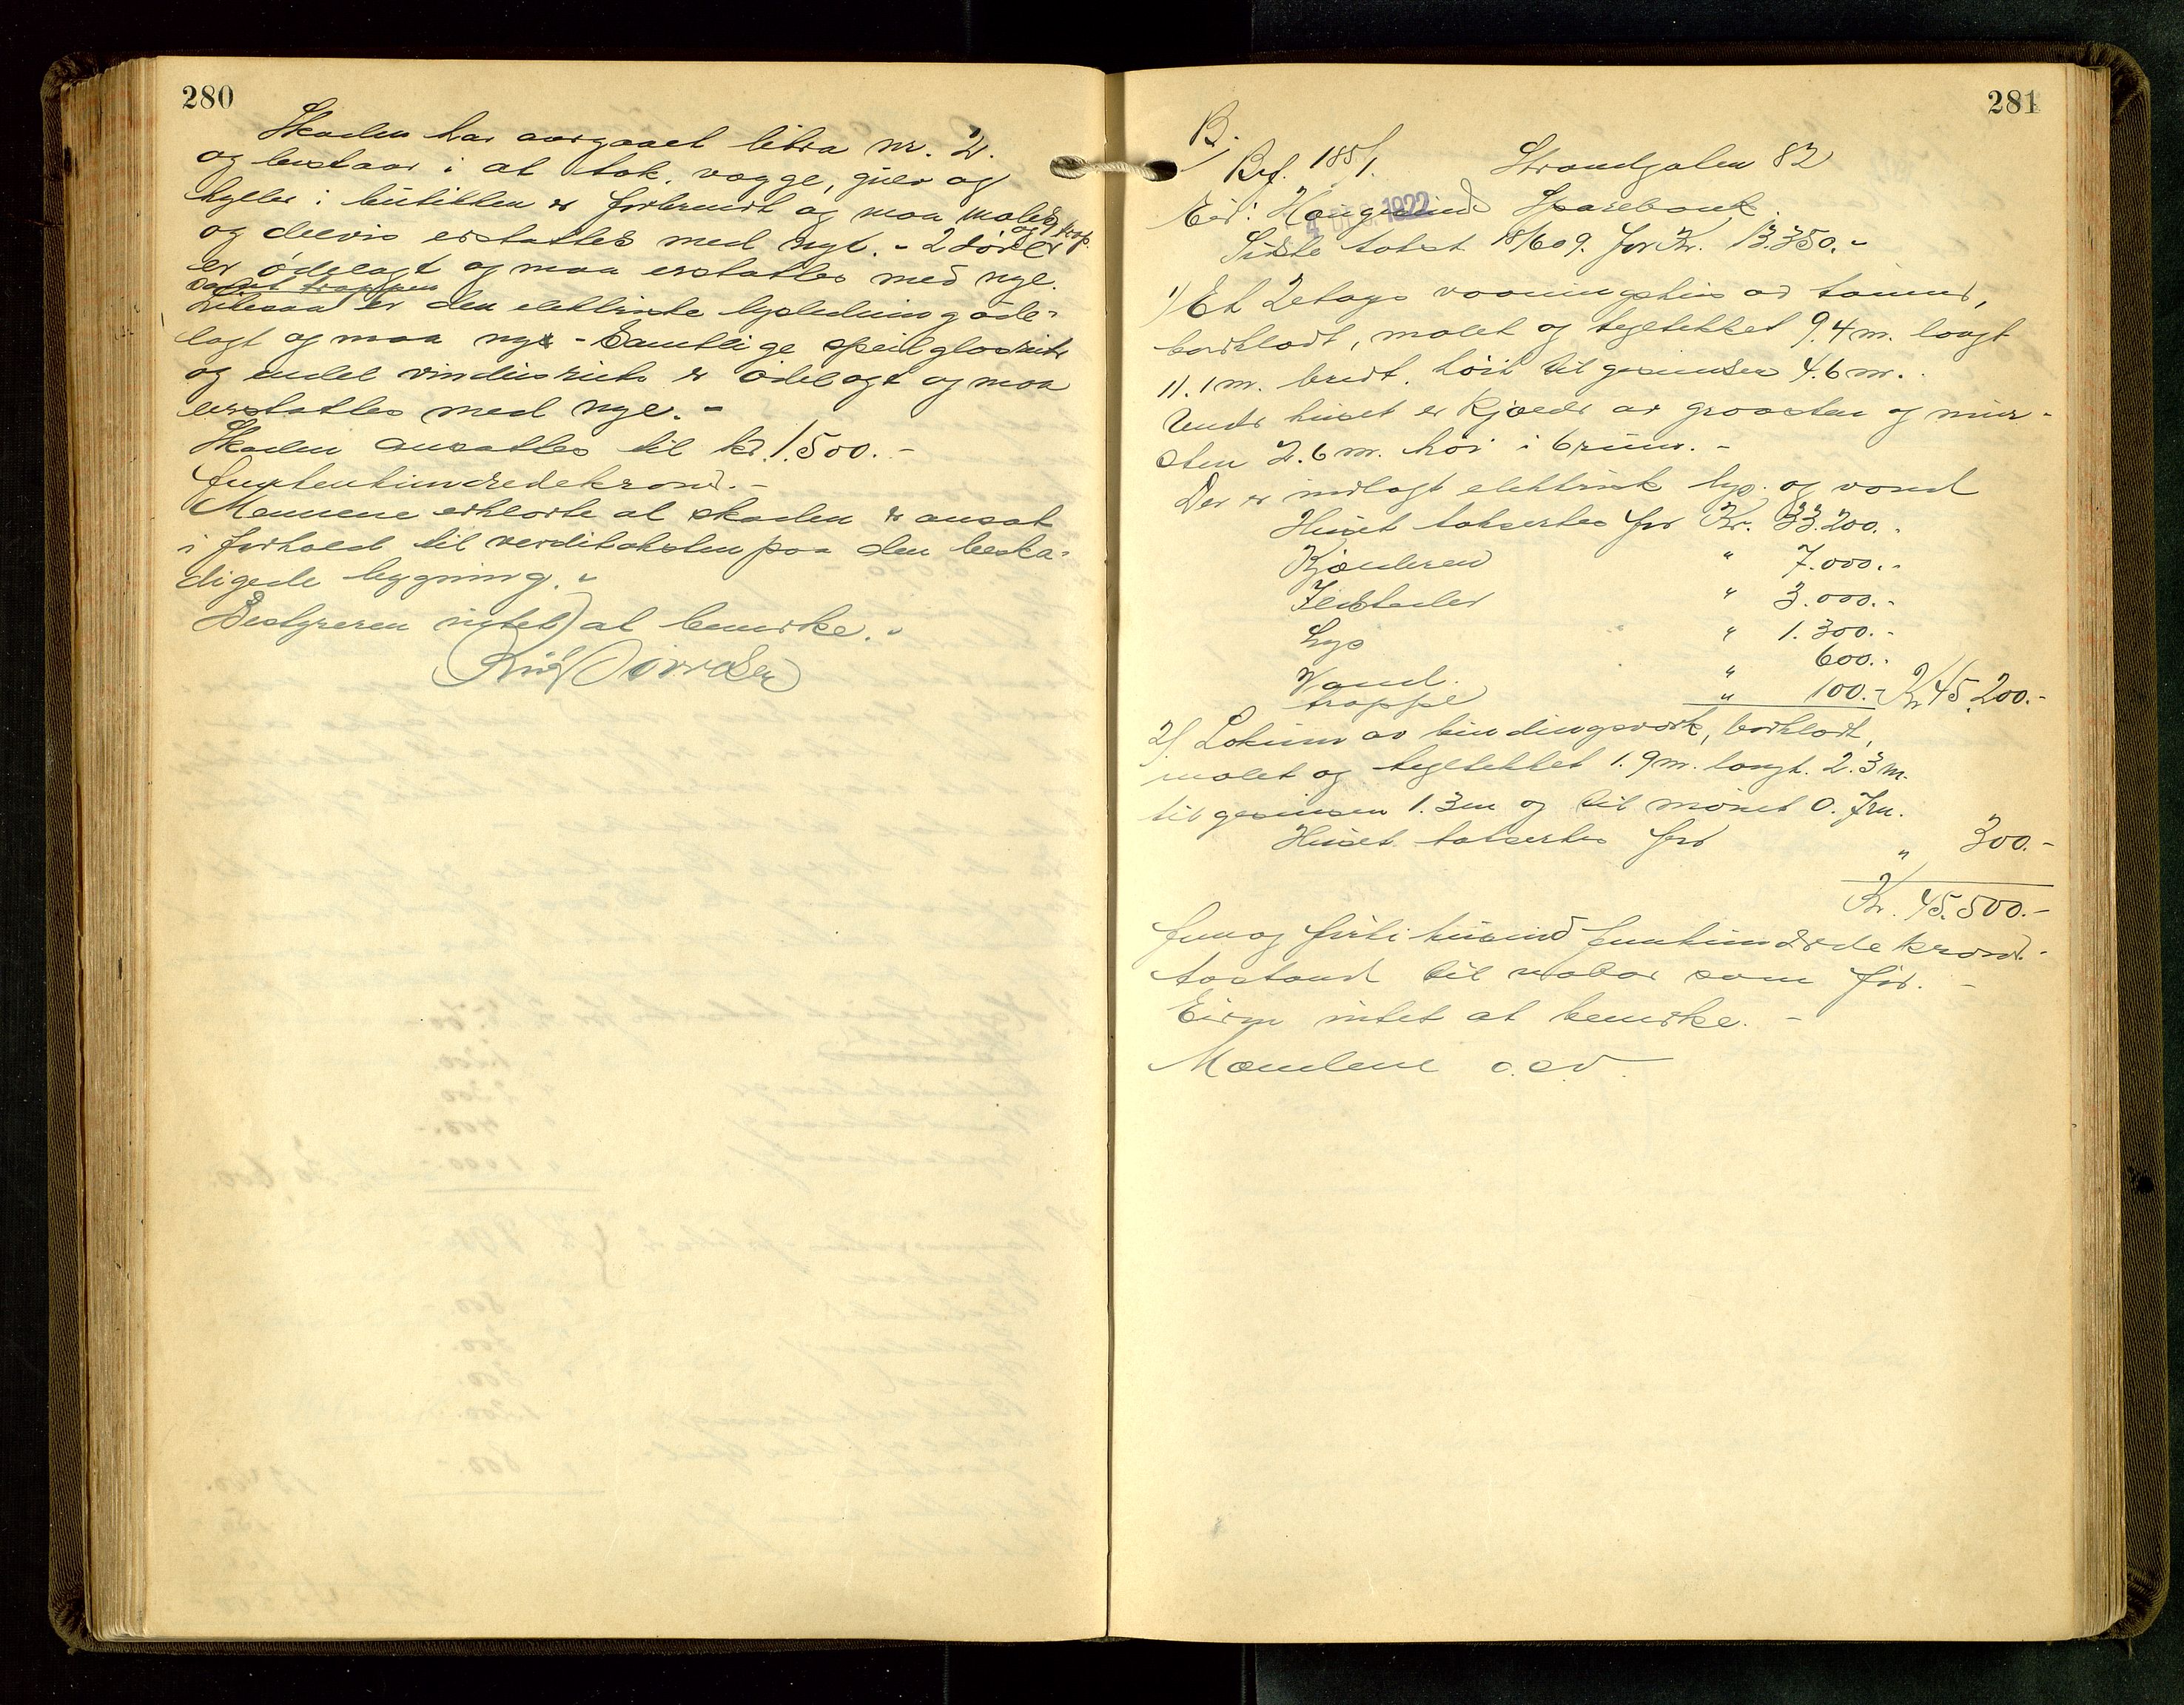 280
Skaden har avrgaaet litra nr. 2.
og bestaar i at tak, vægge, gulv og
hyller i butikken er forbrendt og maa males
og trap.
og delvis erstattes med nyt. - 2 dører
er ødelagt og maa erstattes med nye.
samt trappen
Likesaa er den elektriske lysledning øde-
lagt og maa nyt - Samtlige speilglasruter
og endel vindusruter er ødelagt og maa
erstattes med nye. -
Skaden ansættes til kr. 1.500. -
femtenhundredekroner. -
Mennene erklærte at skaden er ansat
i forhold til verditaksten paa den beska-
digede bygning. -
Bestyreren intet at bemerke. -
281
B.
Brf. 185/1. Strandgaten 82
4 DES. 1922
Eier: Haugesunds Sparebank.
Sidste takst 18/6 09. for Kr. 13.350. -
1) Et 2etages vaaningshus av tømmer,
bordklædt, malet og teglstekket 9.4 m. langt
11.1 m. bredt. høit til gesimsen 4.6 m.
Under huset er kjælder av graasten og mur-
sten 2.6 m. høi i 6 rum. -
Der er indlagt elektrisk lys og vand
Huset takseres for Kr. 33.200. -
Kjælderen " 7.000. -
Ildsteder " 3.000. -
Lys " 1.300. -
Vand. " 600. -
trappe " 100. - Kr 45.200. -
2) Lokum av bindingsverk, bordklædt,
malet og tegltekket 1.9 m. langt. 2.3 m.
til gesimsen 1.3 m og til mønet 0.7 m.
Huset takseres for " 300. -
Kr. 45.500. -
fem og førti tusind femhundrede kroner. -
Avstand til naboer som før. -
Eieren intet at bemerke. -
Mændene o.s.v.